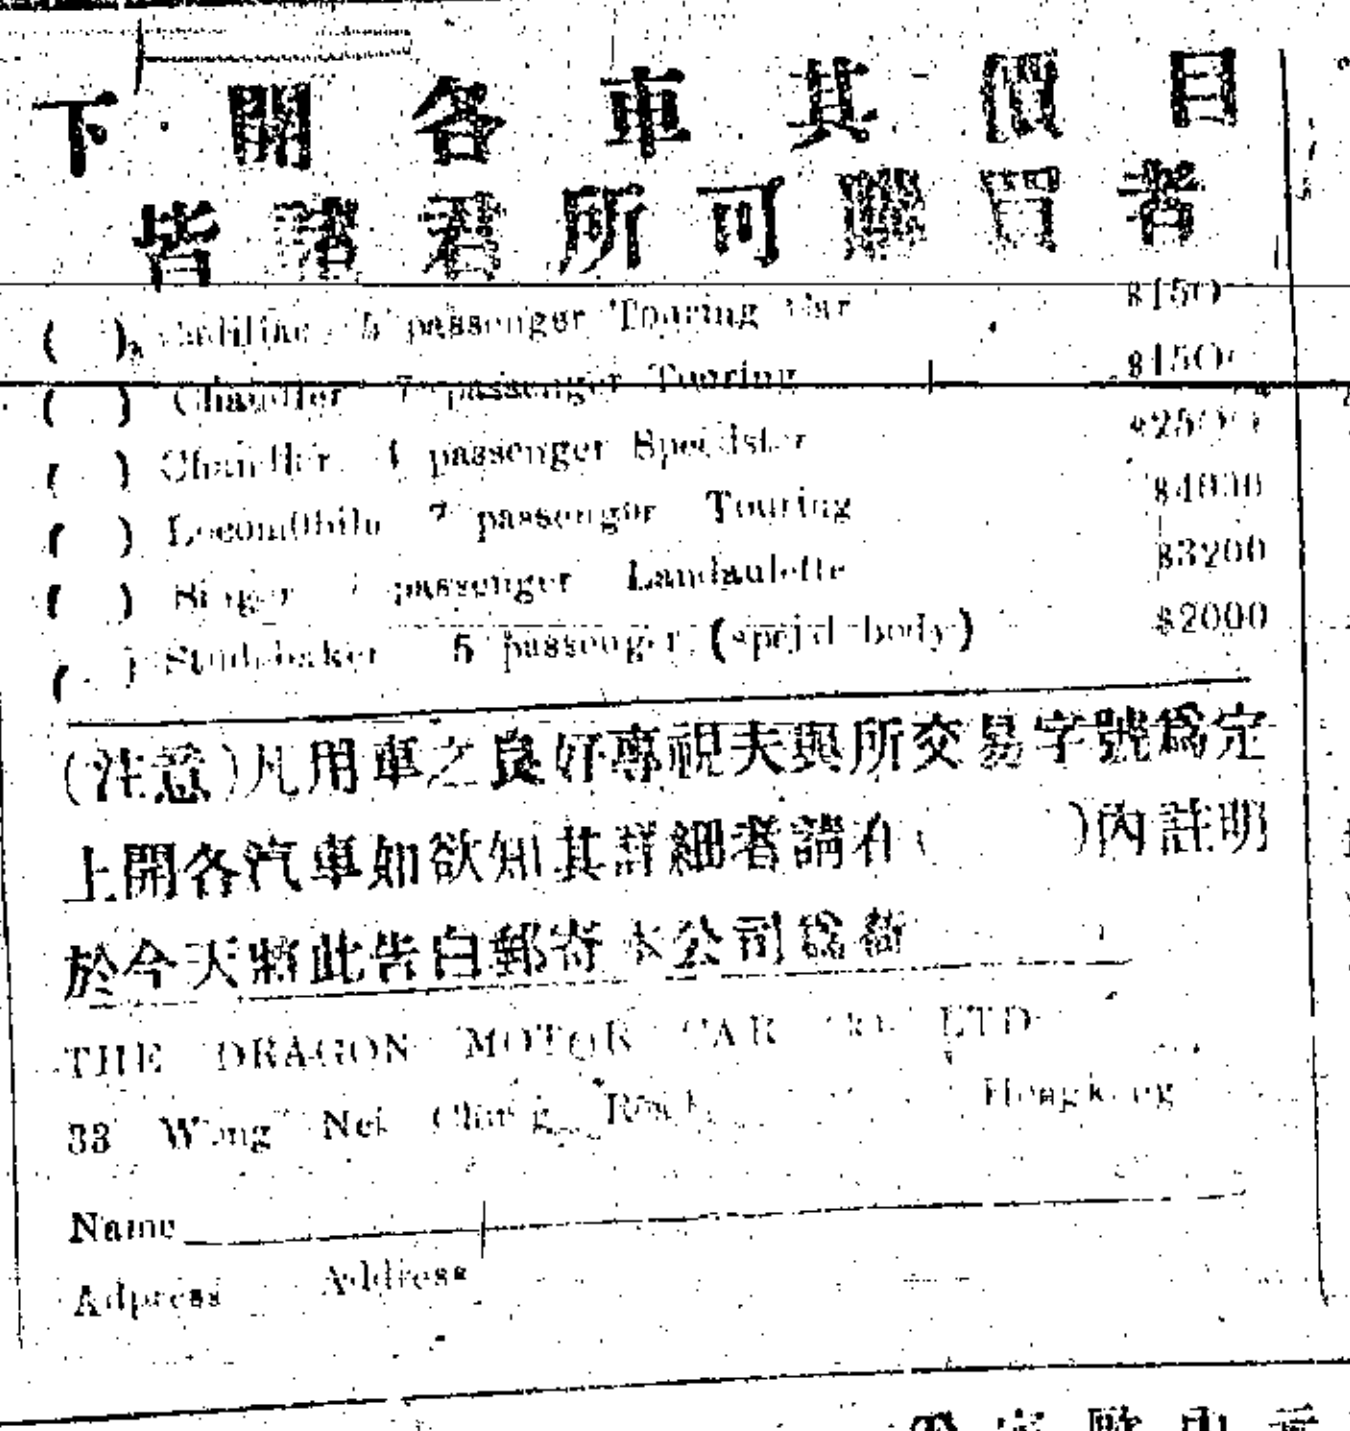 下開各車其價目
皆諸君所可購買者
( ) Cadillac 5 passenger Touring Car $150
( ) Chandler 7 passenger Touring $150
( ) Chandler 4 passenger Speedster $2500
( ) Locomobile 7 passenger Touring $4000
( ) Singer passenger Landaulette $3200
( ) Studebaker 5 passenger (spejal body) $2000
(注意)凡用車之良好專視夫與所交易字號為定
上開各汽車如欲知其詳細者請在( )內註明
於今天將此告白郵寄本公司為荷
THE DRAGON MOTOR CAR CO LTD
33 Wong Nei Chung Road Hongkong
Name
Adpress Address